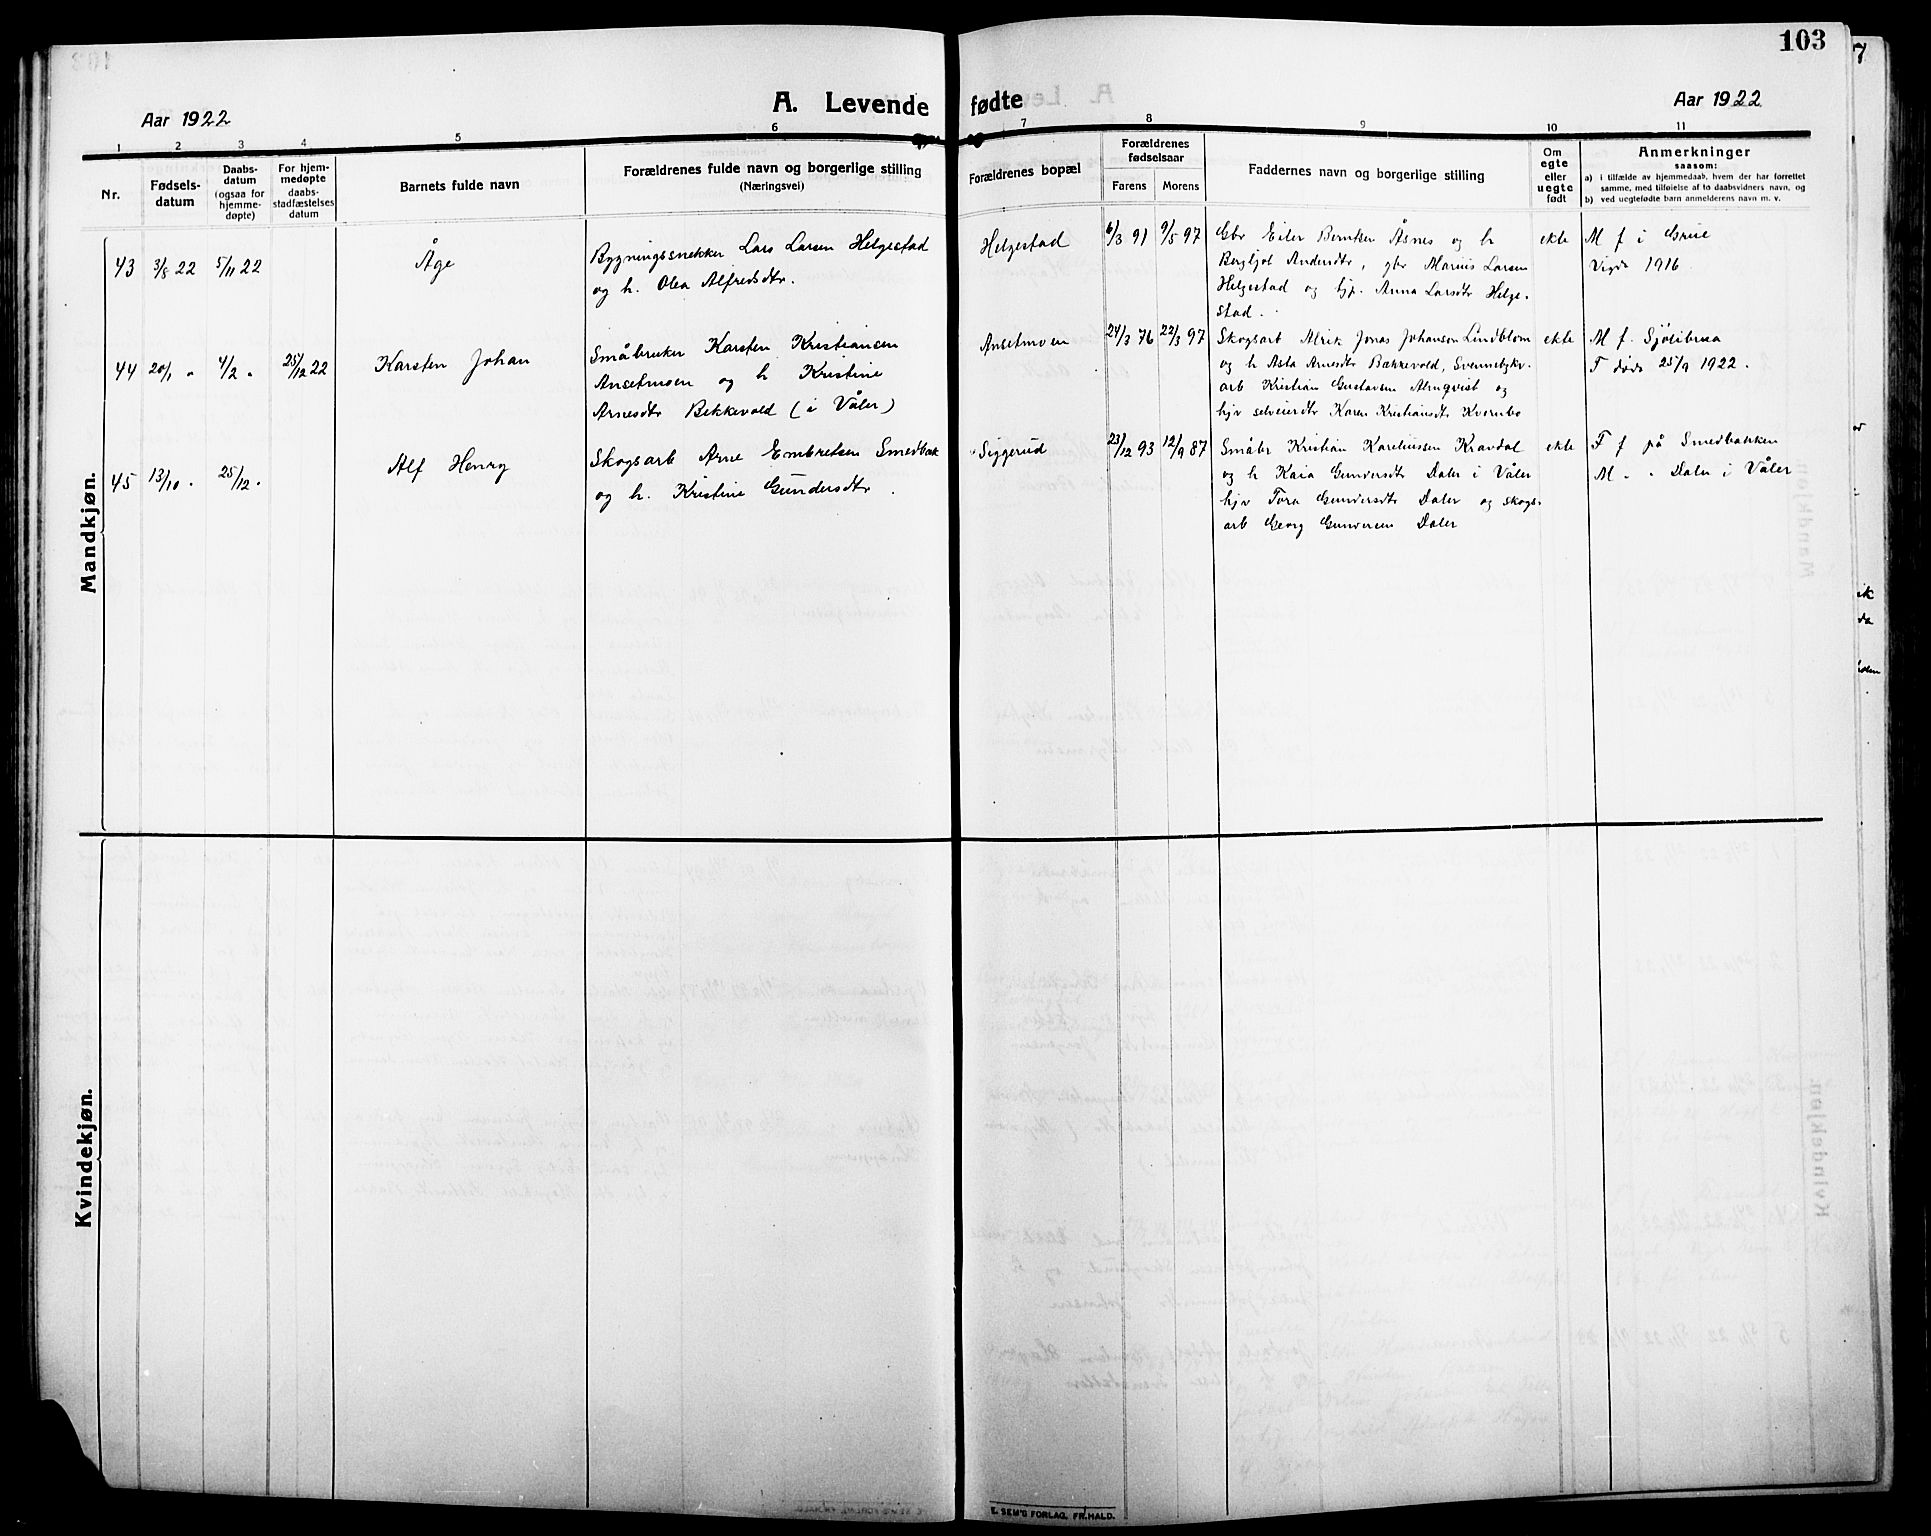 103
A. Levende fødte
Aar 1922
Aar 1922
1 2 3 4 5 6 7 8 9 10 11
Nr.
Fødsels-
datum
Daabs-
datum
(ogsaa for
hjemme-
døpte)
For hjem-
medøpte
daabs-
stadfæstelses
datum
Barnets fulde navn
Forældrenes fulde navn og borgerlige stilling
(Næringsvei)
Forældrenes bopæl
Forældrenes
fødselsaar
Farens Morens
Faddernes navn og borgerlige stilling
Om
egte
eller
uegte
født
Anmerkninger
saasom:
a) i tilfælde av hjemmedaab, hvem der har forrettet
samme, med tilføielse af to daabsvidners navn, og
b) ved uegtefødte barn anmelderens navn m. v.
Mandkjøn.
43 3/8 22 5/11 22
Åge
Bygningssnekker Lars Larsen Helgestad
og h. Olea Alfredsdtr.
Helgestad
6/3 91 9/5 97
Gbr Eiler Berntsen Åsnes og h
Bergljot Andersdtr, gbr Marius Larsen
Helgestad og hjp. Anna Larsdtr Helge-
stad.
ekte
M f i Grue
Vigde 1916
44 20/1 " 4/2 " 25/12 22
Karsten Johan
Småbruker Karsten Kristiansen
Ansetmoen og h Kristine
Arnesdtr Bekkevold (i Våler)
Ansetmoen
24/3 76 22/3 97
Skogsarb Alrik Jonas Johanson Lindblom
og h Asta Arnesdtr Bækkevold, Svennebykv.
arb Kristian Gustavsen Almqvist og
hjv selveierdtr Karen Kristiansdtr Kvernbo
ekte
M f. Sjölibrua
F döde 25/9 1922.
45 13/10 " 25/12 "
Alf Henry
Skogsarb Arne Embretsen Smedbak
og h. Kristine Gundersdtr.
Siggerud
23/12 93 12/9 87
Småbr Kristian Kareliussen Kravdal
og h Kaia Gundersdtr Daler i Våler
hjv Tora Gundersdtr Daler og skogs-
arb Georg Gundersen Daler
ekte
F f på Smedbakken
M " " Daler i Våler
Kvindekjøn.
E. SEM'S FORLAG, FR.HALD.